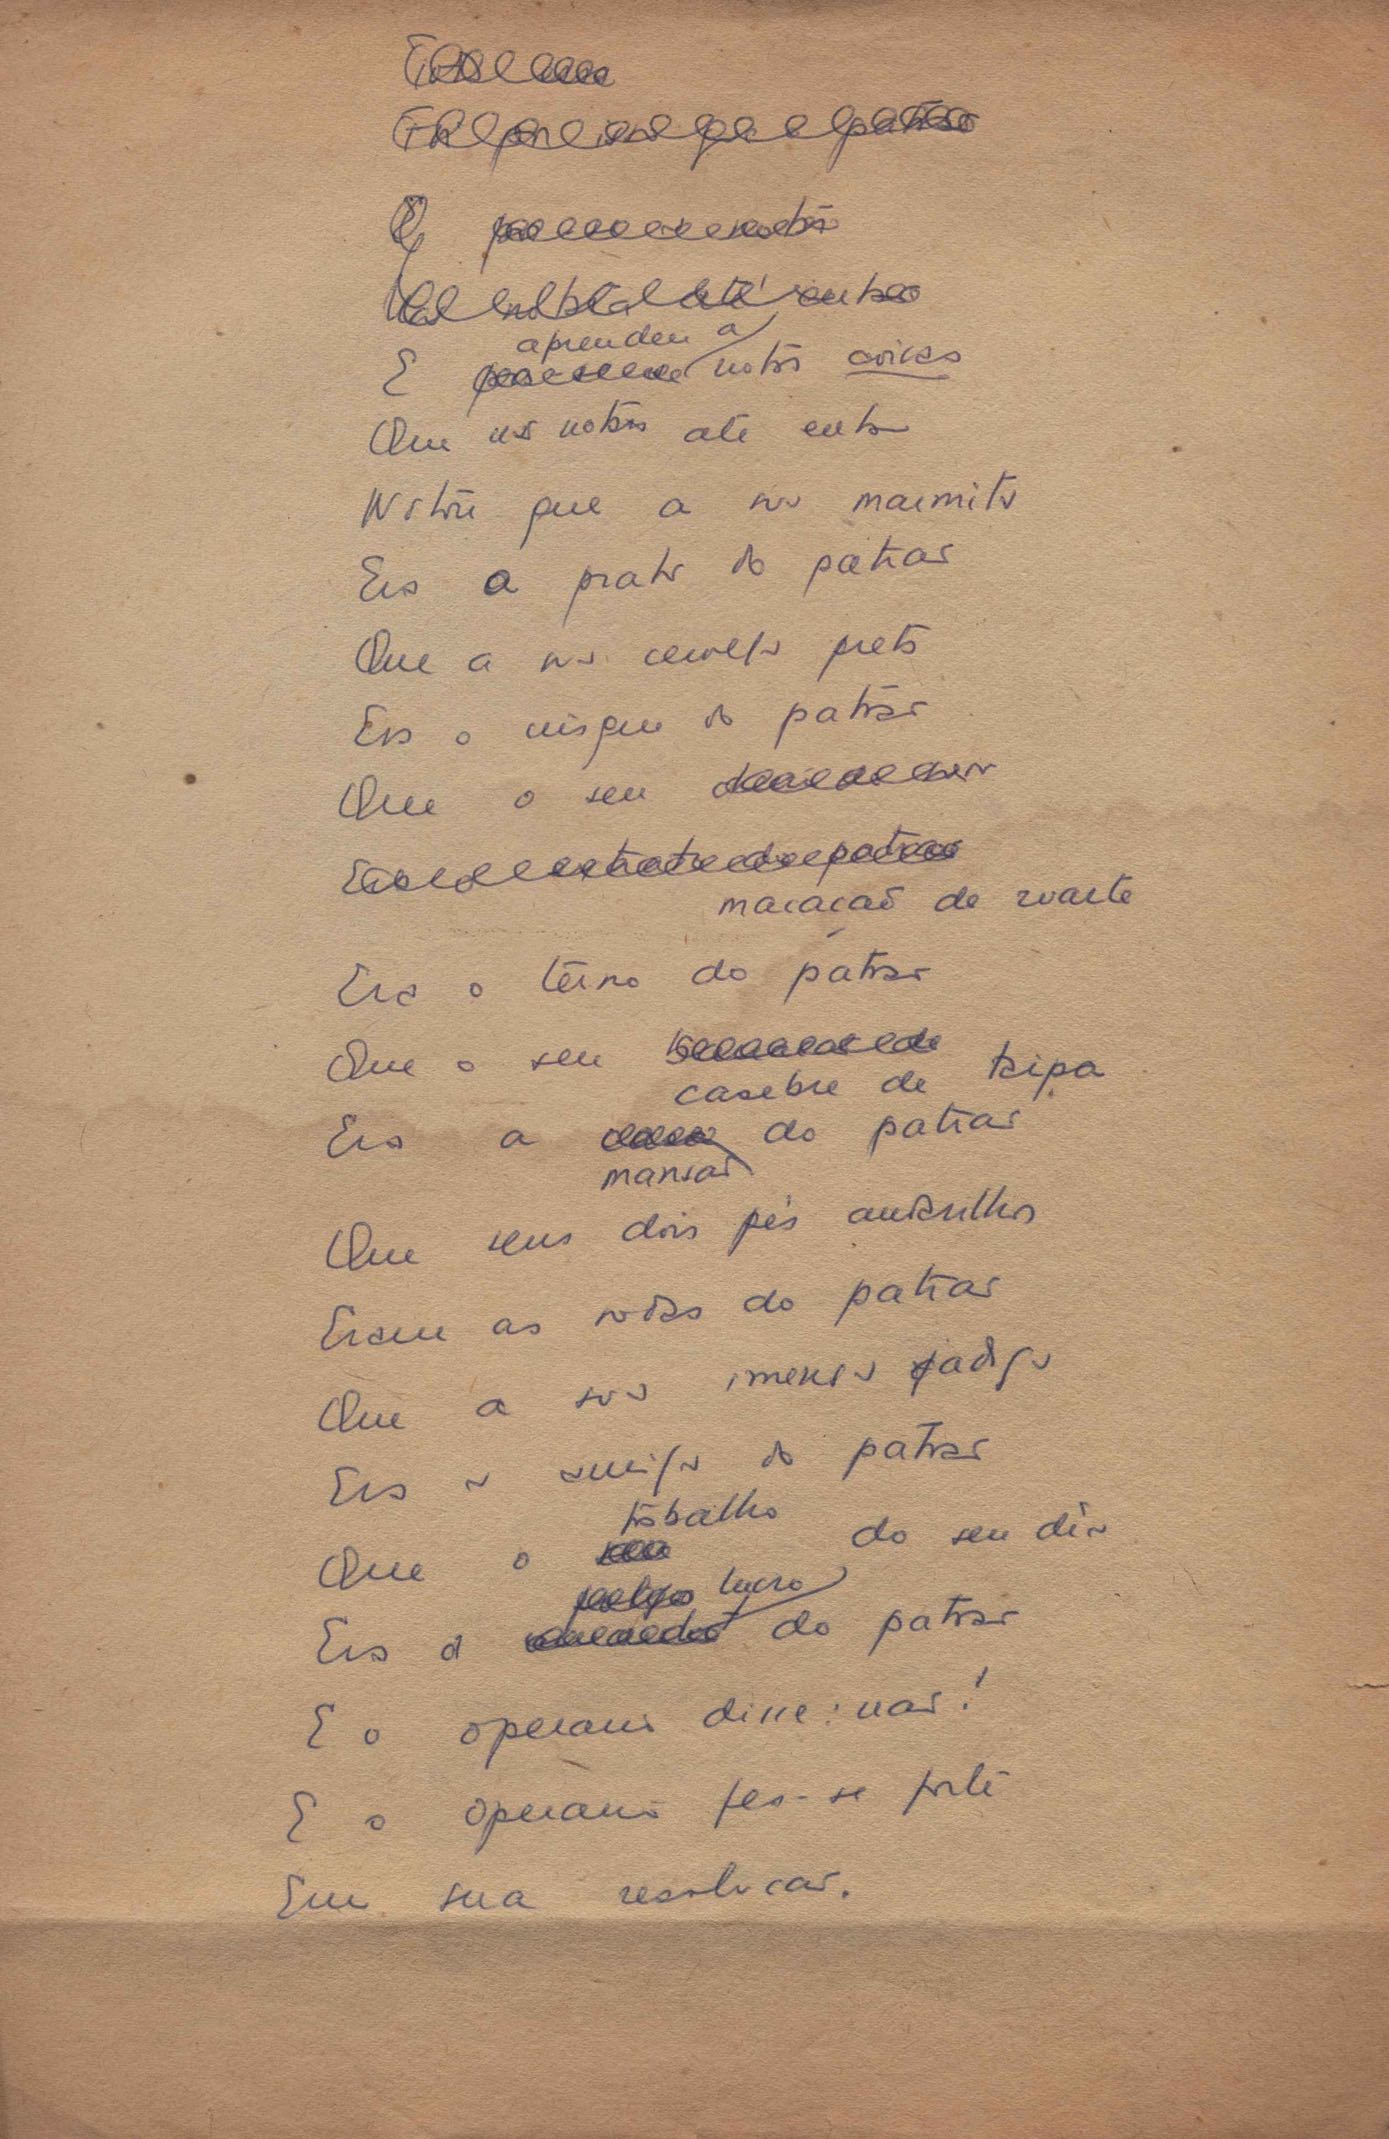 aprendeu a
E notar coisas
Que não notara até então
Notou que a sua marmita
Era o prato do patrão
Que a sua cerveja preta
Era o uisque do patrão
Que o seu
macacão de zuarte
Era o terno do patrão
Que o seu
casebre de taipa
Era a do patrão
mansão
Que seus dois pés andarilhos
Eram as rodas do patrão
Que a sua imensa fadiga
Era a amiga do patrão
trabalho
Que o do seu dia
lucro
Era o do patrão
E o operario disse: não!
E o operario fez-se forte
Em sua resolução.